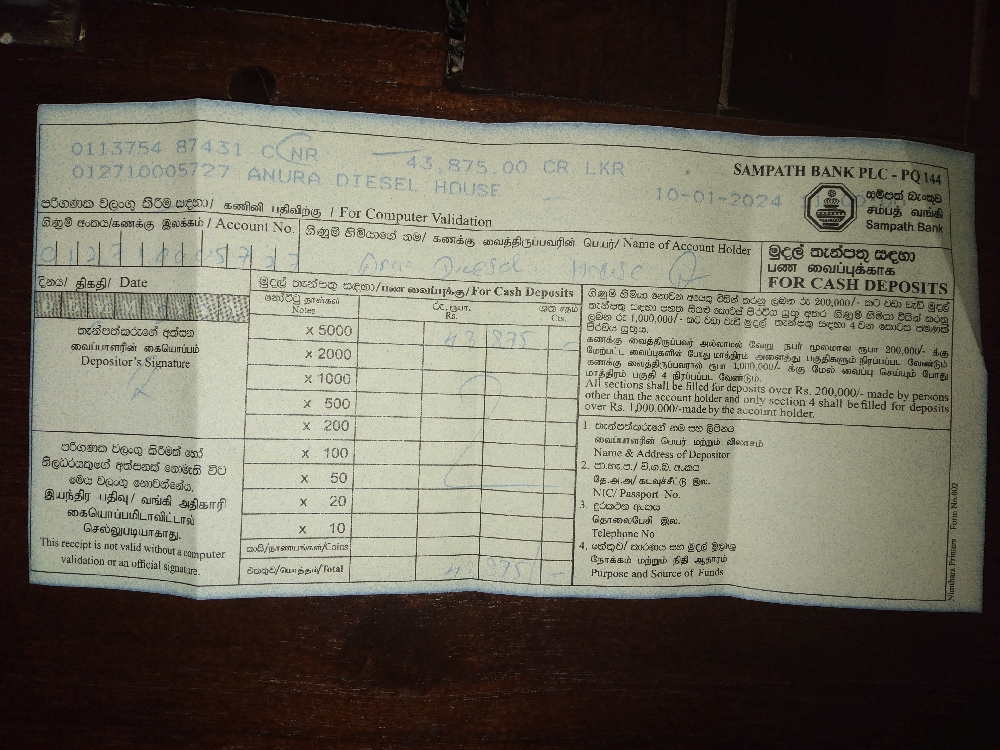 0113754 87431 C NR 43,875.00 CR LKR
012710005727 ANURA DIESEL HOUSE 10-01-2024
SAMPATH BANK PLC - PQ 144
සම්පත් බැංකුව
சம்பத் வங்கி
Sampath Bank
පරිගණක වලංගු කිරීම සඳහා/ கணினி பதிவிற்கு / For Computer Validation
ගිණුම් අංකය/கணக்கு இலக்கம் / Account No.
012710005727
ගිණුම් හිමියාගේ නම/ கணக்கு வைத்திருப்பவரின் பெயர்/ Name of Account Holder
Diesel House
මුදල් තැන්පතු සඳහා
பண வைப்புக்காக
FOR CASH DEPOSITS
දිනය/ திகதி/ Date
තැන්පත්කරුගේ අත්සන
வைப்பாளரின் கையொப்பம்
Depositor's Signature
පරිගණක වලංගු කිරීමක් හෝ
නිලධරයකුගේ අත්සනක් නොමැති විට
මෙය වලංගු නොවන්නේය.
இயந்திர பதிவு/ வங்கி அதிகாரி
கையொப்பமிடாவிட்டால்
செல்லுபடியாகாது.
This receipt is not valid without a computer
validation or an official signature.
මුදල් තැන්පතු සඳහා/பண வைப்புக்கு/For Cash Deposits
නෝට්ටු தாள்கள்
Notes
රු. ரூபா.
Rs.
ශත சதம்
Cts.
x 5000 43 875 -
x 2000
x 1000
x 500
x 200
x 100
x 50
x 20
x 10
කාසි/நாணயங்கள்/Coins
එකතුව/மொத்தம்/Total 43 875 -
ගිණුම් හිමියා නොවන අයෙකු විසින් කරනු ලබන රු 200,000/- කට වඩා වැඩි මුදල්
කණக்கு வைத்திருப்பவர் அல்லாமல் வேறு நபர் மூலமான ரூபா 200,000/- க்கு
மேற்பட்ட வைப்புகளின் போது மாத்திரம் அனைத்து பகுதிகளும் நிரப்பப்பட வேண்டும்
கணக்கு வைத்திருப்பவரால் ரூபா 1,000,000/- க்கு மேல் வைப்பு செய்யும் போது
மாத்திரம் பகுதி 4 நிரப்பப்பட வேண்டும்.
All sections shall be filled for deposits over Rs. 200,000/- made by persons
other than the account holder and only section 4 shall be filled for deposits
over Rs. 1,000,000/-made by the account holder.
1. තැන්පත්කරුගේ නම සහ ලිපිනය
வைப்பாளரின் பெயர் மற்றும் விலாசம்
Name & Address of Depositor
2. ජා.හැ.ප./ වි.ග.බ. අංකය
தே.அ.அ/ கடவுச்சீட்டு இல.
NIC/ Passport No.
3. දුරකථන අංකය
தொலைபேசி இல.
Telephone No
4. හේතුව/ කාරණය සහ මුදල් මූලාශ්‍ර
நோக்கம் மற்றும் நிதி ஆதாரம்
Purpose and Source of Funds
Numbara Printers Form No.002